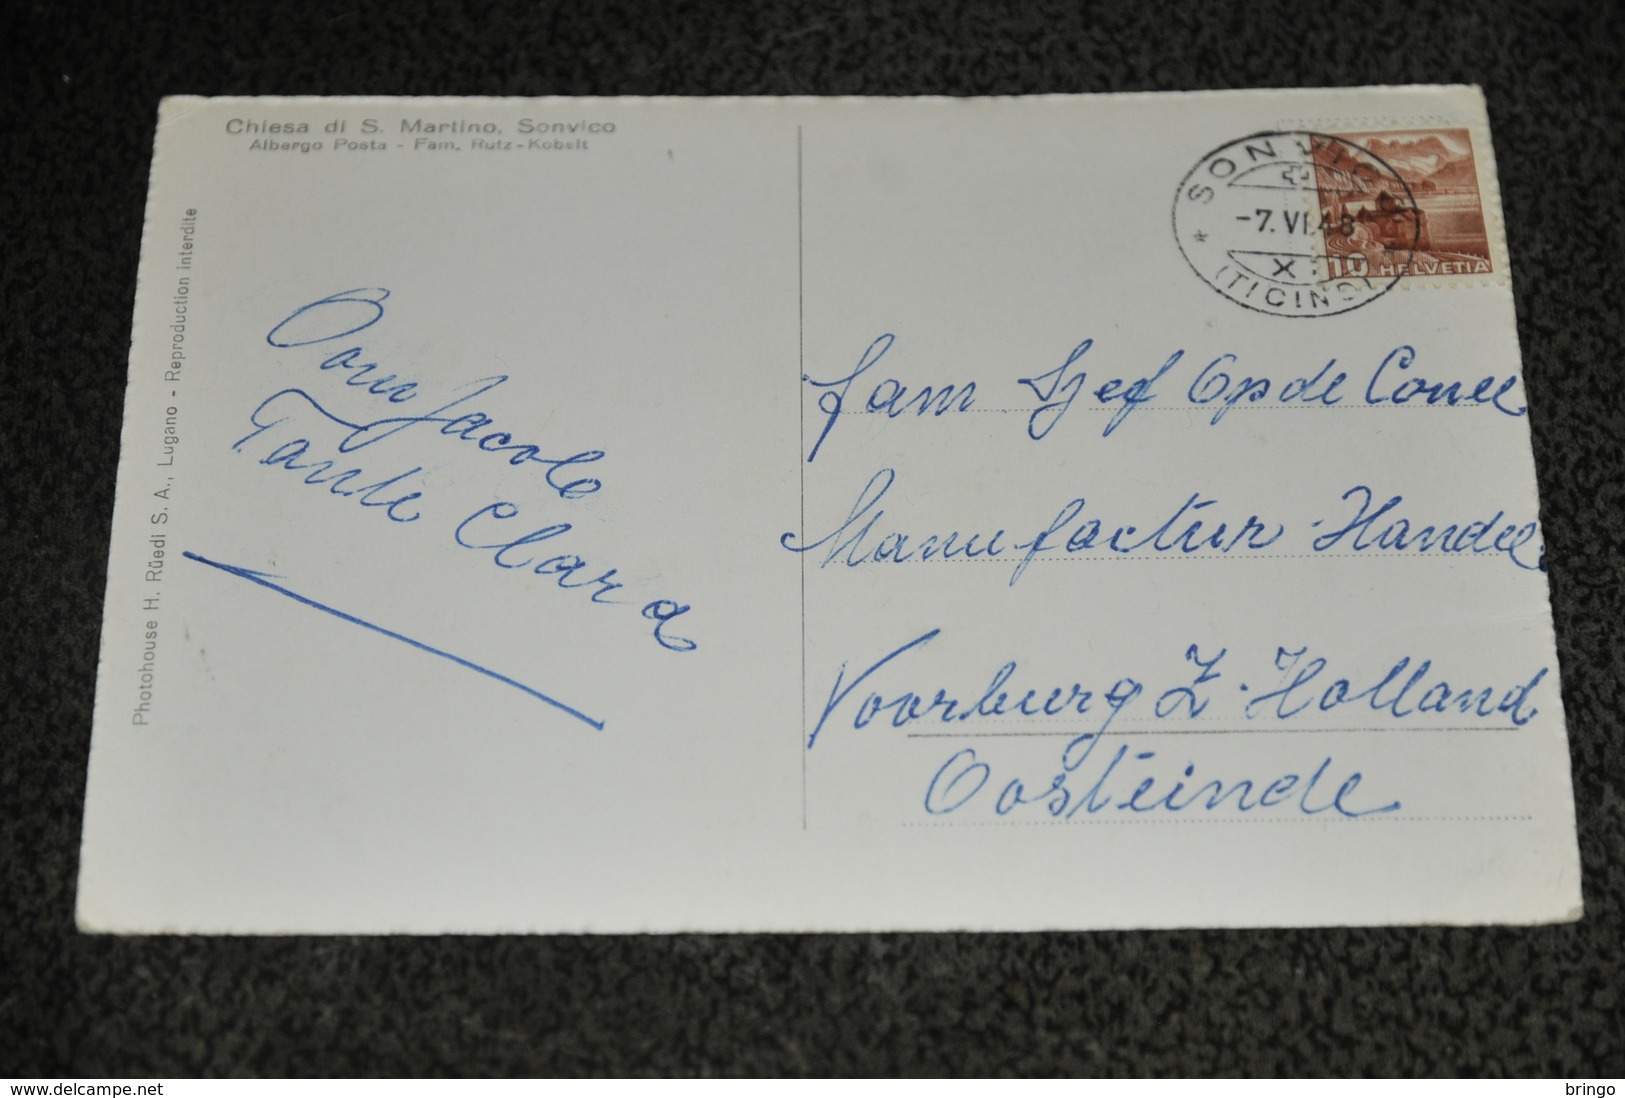 Chiesa di S. Martino, Sonvico
Albergo Posta - Fam. Rutz-Kobelt
Photohouse H. Rüedi S. A., Lugano - Reproduction interdite
Oom Jacole
Tante Clara
SONVICO
-7.VI.48
X
(TICINO)
10 HELVETIA
fam Sjef Op de Conee
Manufactur Handel
Voorburg Z. Holland
Oosteinde
www.delcampe.net
bringo